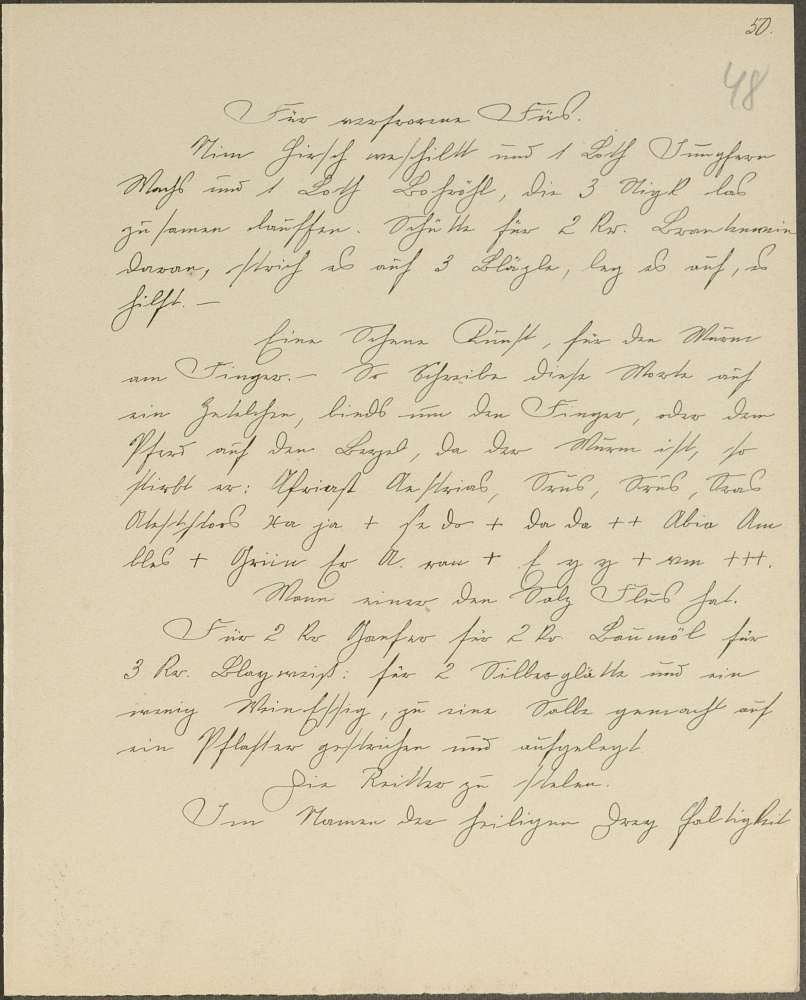 50.
48
Für verfrorene Füs.
Nim Hirsch weschiltt und 1 Loth Jungfern
Wachs und 1 Loth Bohröhl, die 3 Stigk las
zu samen lauffen. Schütte für 2 Kr. Brantenwein
daran, strich es auf 3 Bläzle, leg es auf, es
hilft. —
Eine Schene Kunst, für den Wurm
am Finger. — So Schreibe diese Worte auf
ein Zetelchen, binds um den Finger, oder dem
Pferd auf den Berzel, da der Wurm ist, so
stirbt er: Afriast Aestrias, Srus, Srus, Sras
xa ja + se do + da da ++ Abia Am
bles + Grün Er A. ran + E y y + vm +++.
Wann einer den Salz Flus hat.
Für 2 Kr Gaefer für 2 Kr. Baumöl für
3 Kr. Blayweiß: für 2 Silberglätte und ein
wenig WeinEssig, zu eine Salbe gemacht auf
ein Pflaster gestrichen und aufgelegt
Die Reitter zu stelen.
Im Namen der heiligen Drey faltigkeit